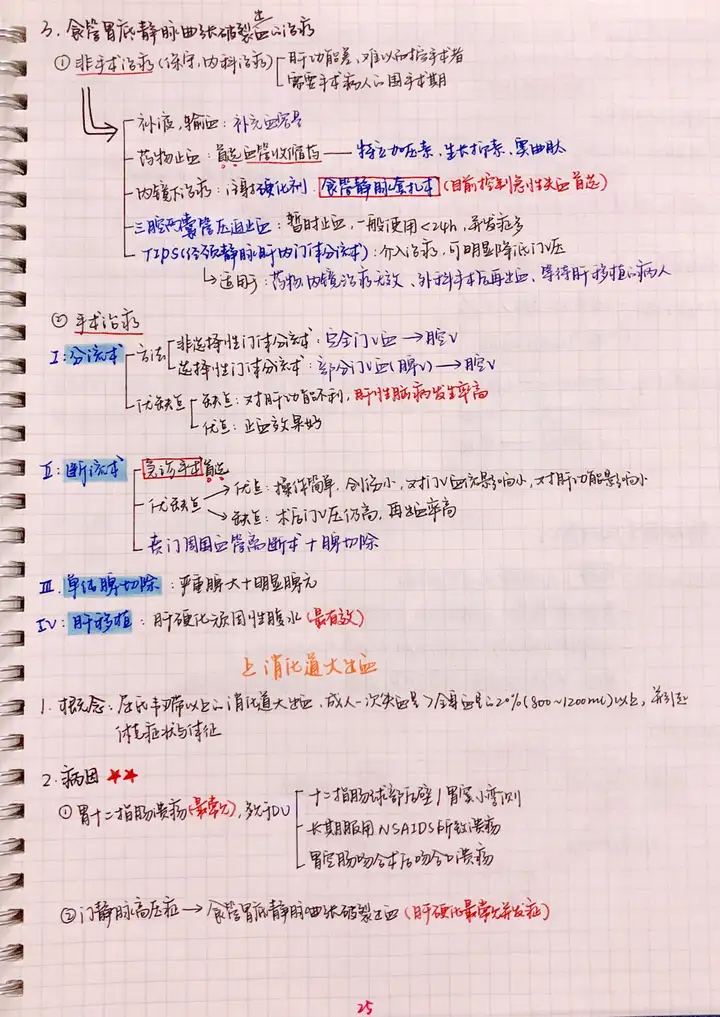 3. 食管胃底静脉曲张破裂出血的治疗
① 非手术治疗(保守,内科治疗) 肝功能差、难以耐控手术者
需要手术病人的围手术期
补液,输血:补充血容量
药物止血:首选血管收缩药——特立加压素、生长抑素、奥曲肽
内镜下治疗:注射硬化剂,食管静脉套扎术(目前控制急性失血首选)
三腔两囊管压迫止血:暂时止血,一般使用<24h,并发症多
TIPS(经颈静脉肝内门体分流术):介入治疗,可明显降低门V压
适用于:药物、内镜治疗无效、外科手术后再出血、等待肝移植的病人
② 手术治疗
I:分流术 方法 非选择性门体分流术:完全门V血→腔V
选择性门体分流术:部分门V血(脾V)→腔V
优缺点 缺点:对肝功能不利,肝性脑病发生率高
优点:止血效果好
II:断流术 急诊手术首选
优缺点 优点:操作简单、创伤小、对门V血流影响小、对肝功能影响小
缺点:术后门V压仍高,再出血率高
贲门周围血管离断术+脾切除
III.单纯脾切除:严重脾大+明显脾亢
IV:肝移植:肝硬化顽固性腹水(最有效)
上消化道大出血
1. 概念:屈氏韧带以上的消化道大出血,成人一次失血量>全身血量的20%(800~1200ml)以上,并引起
休克症状与体征
2. 病因 ★★
①胃十二指肠溃疡(最常见),多于DU 十二指肠球部后壁/胃窦小弯侧
长期服用NSAIDS所致溃疡
胃空肠吻合术后吻合口溃疡
②门静脉高压症→食管胃底静脉曲张破裂出血(肝硬化最常见并发症)
25